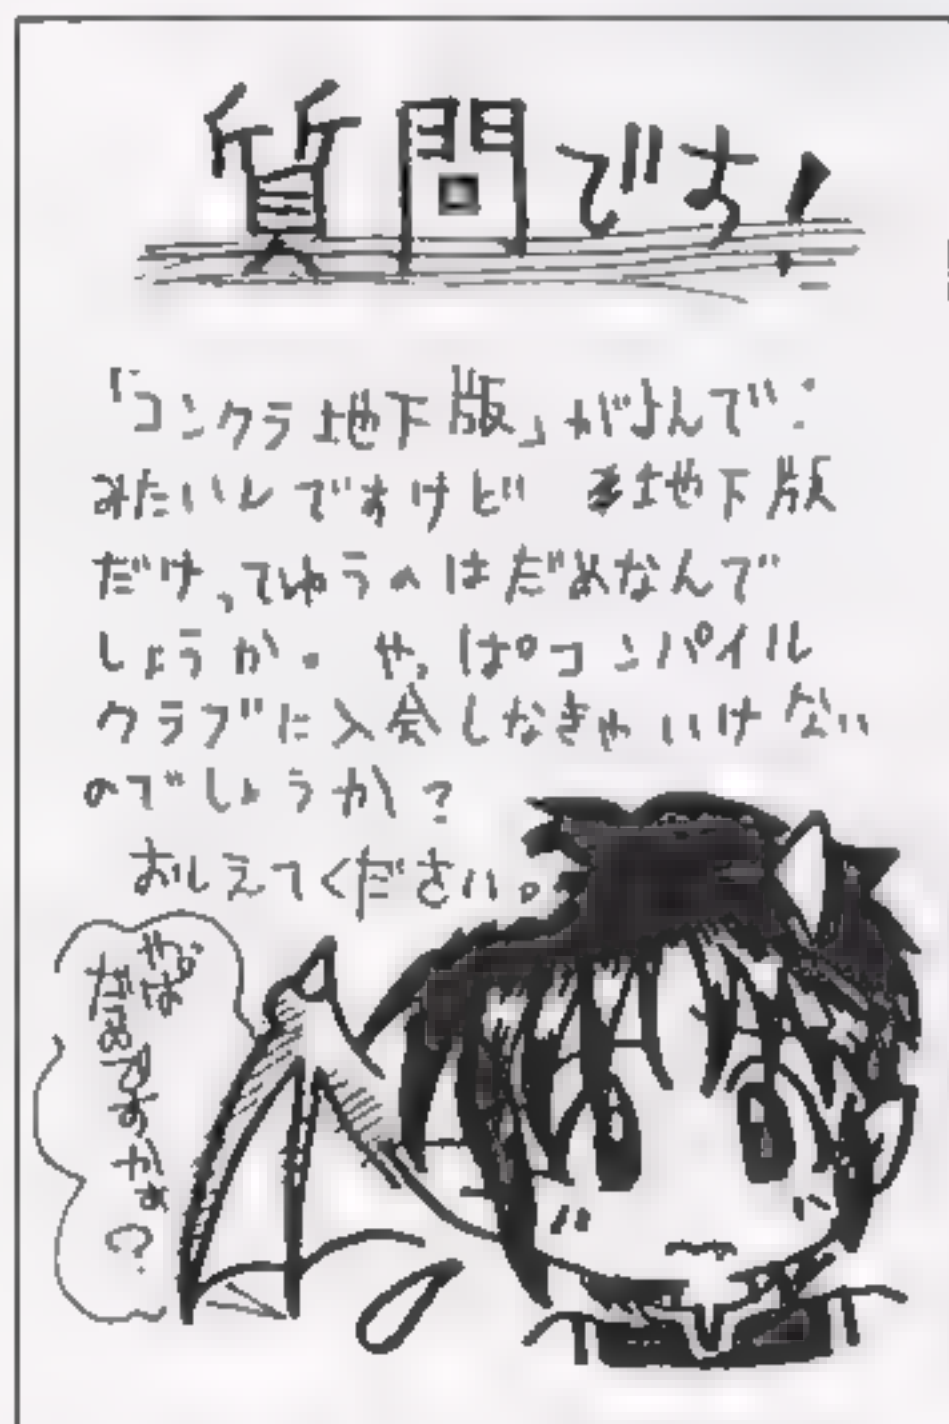 質問です!
「コンクラ地下版」がよんで
みたいんですけど 地下版
だけってゆうのはだめなんで
しょうか。やっぱコンパイル
クラブに入会しなきゃいけない
のでしょうか?
おしえてください。